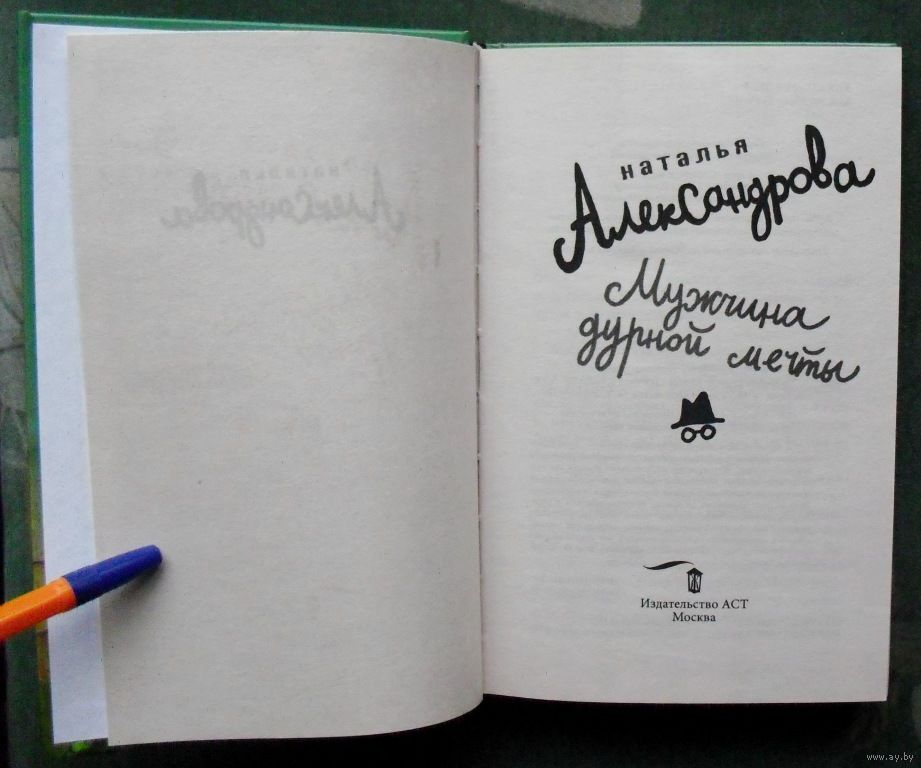 наталья
Александрова
Мужчина
дурной мечты
Издательство АСТ
Москва
www.ay.by